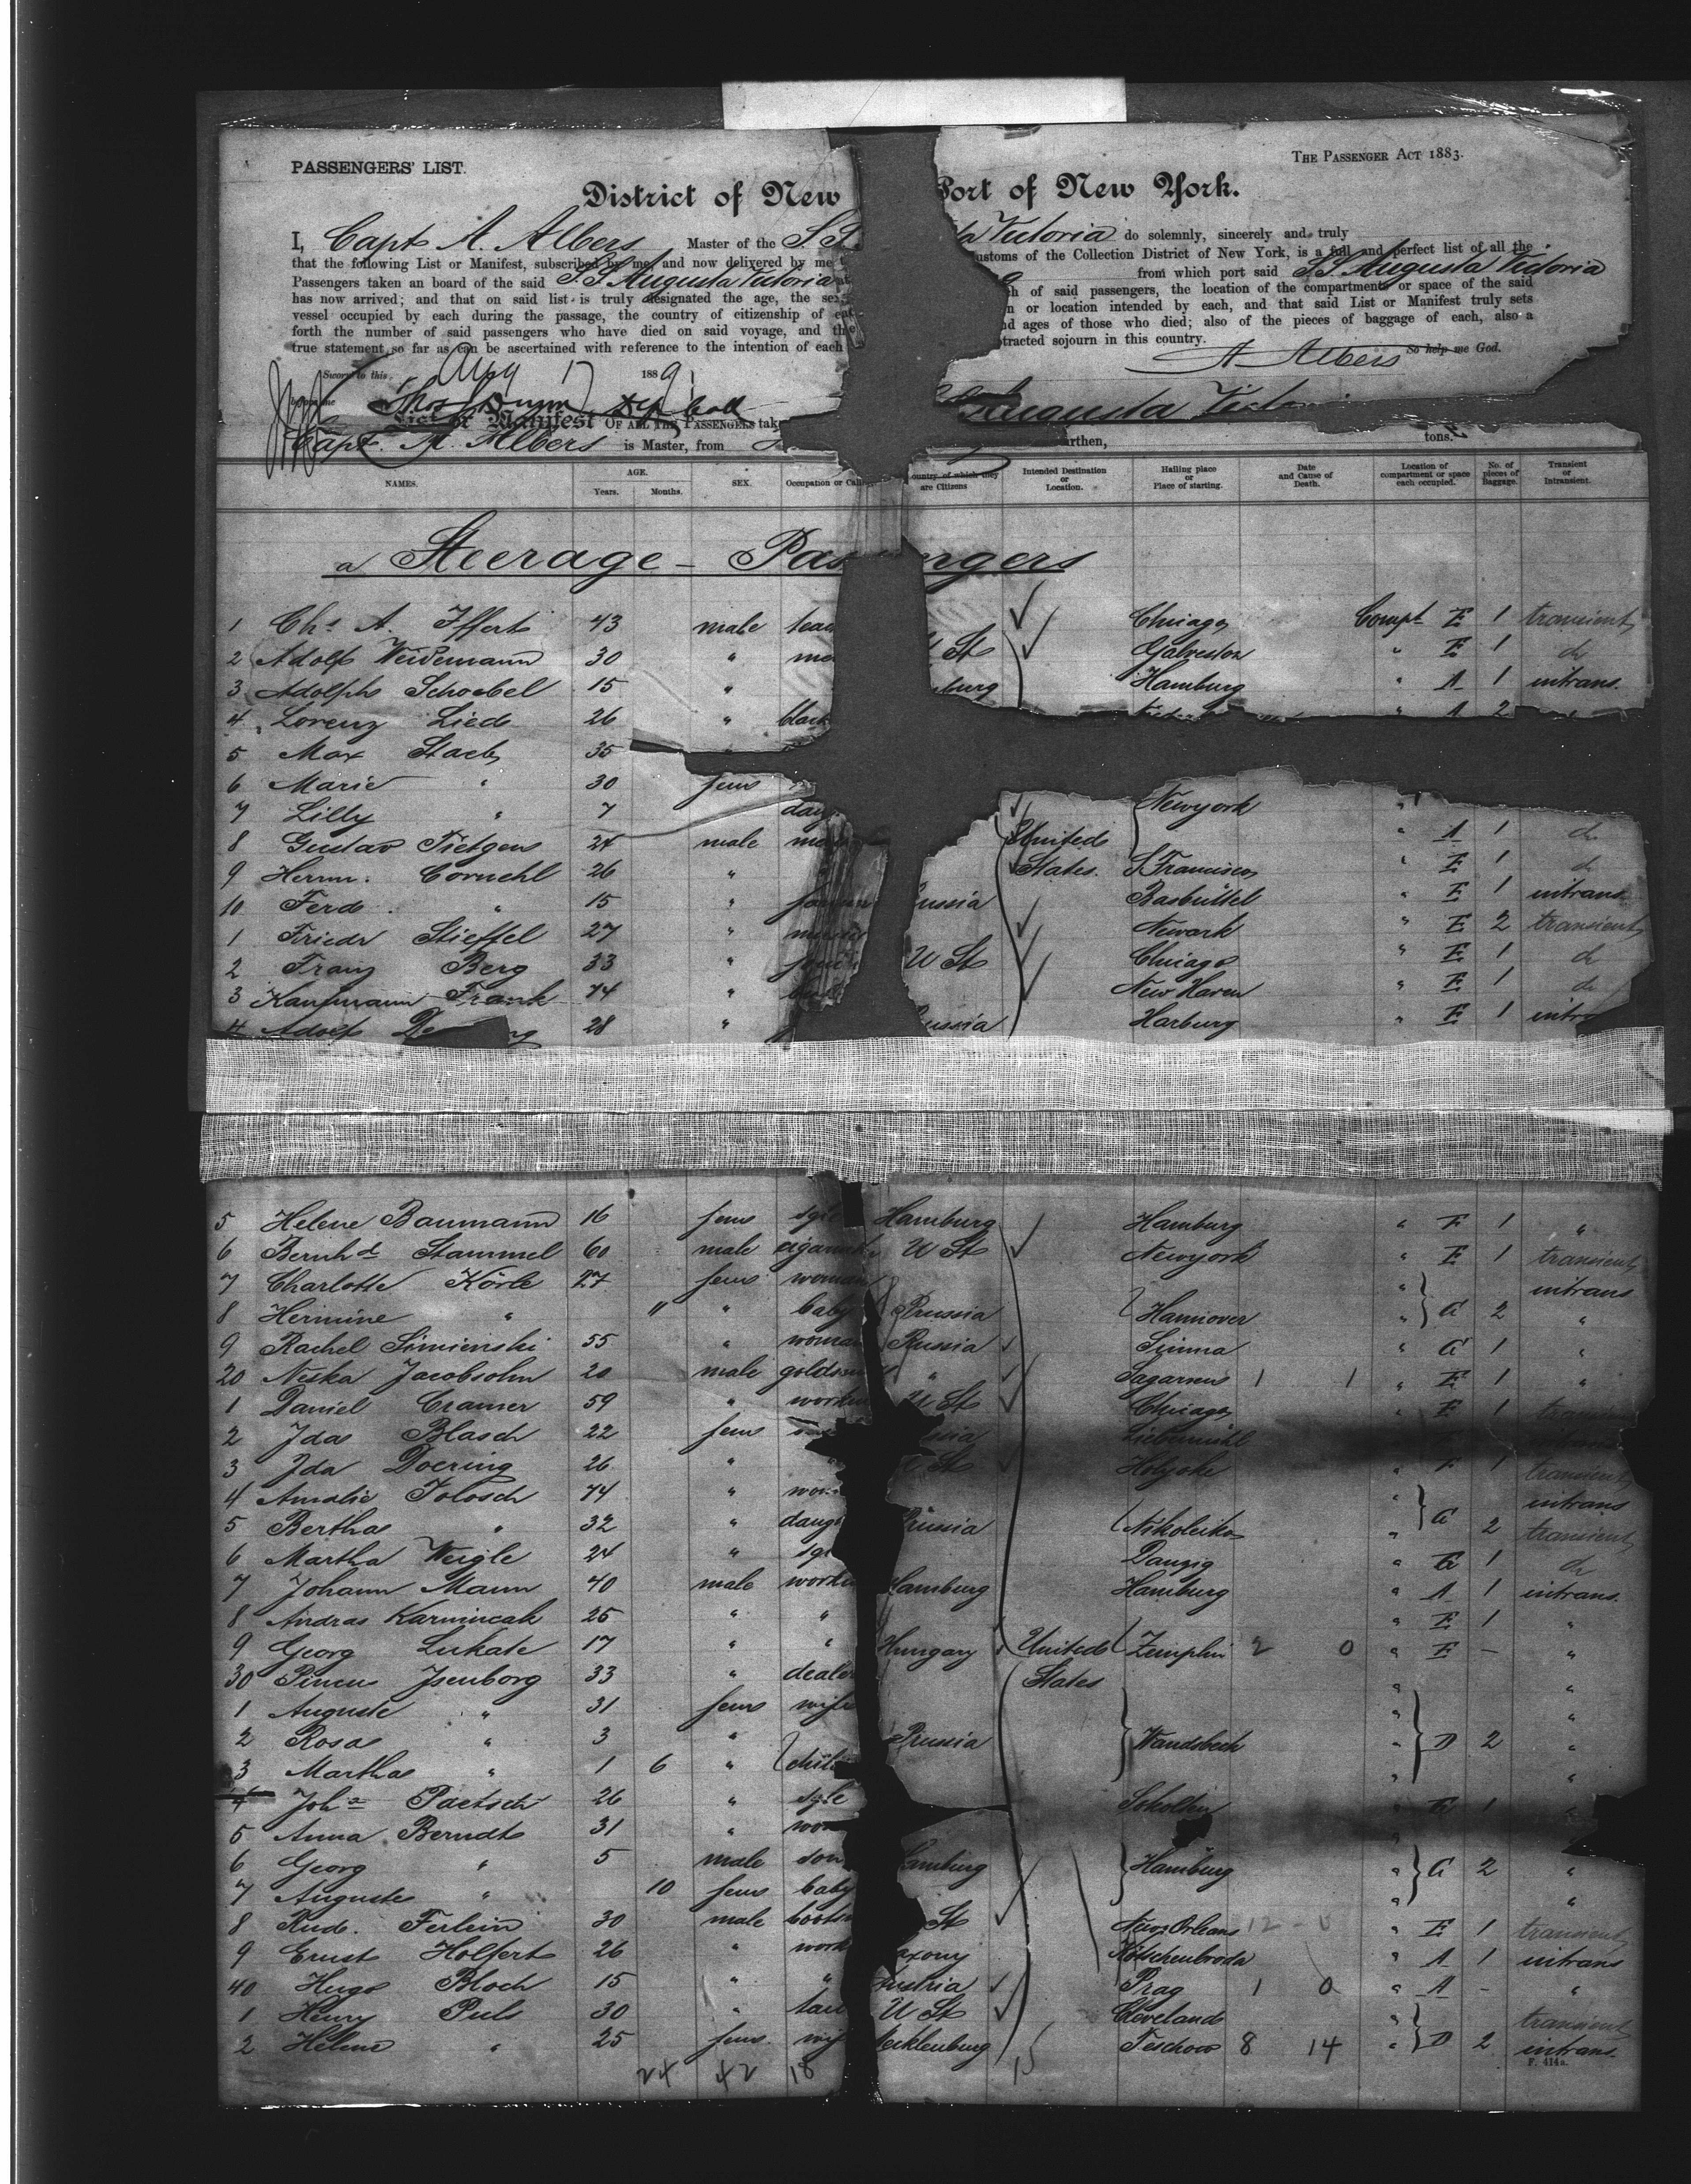 PASSENGERS' LIST.
THE PASSENGER ACT 1883.
District of New Port of New York.
I, Capt A. Albers Master of the S.S. Victoria do solemnly, sincerely and truly
that the following List or Manifest, subscribed by me, and now delivered by me ustoms of the Collection District of New York, is a full and perfect list of all the
Passengers taken an board of the said S.S Augusta Victoria from which port said S.S. Augusta Victoria
has now arrived; and that on said list is truly designated the age, the sex h of said passengers, the location of the compartment or space of the said
vessel occupied by each during the passage, the country of citizenship of ea n or location intended by each, and that said List or Manifest truly sets
forth the number of said passengers who have died on said voyage, and the nd ages of those who died; also of the pieces of baggage of each, also a
true statement so far as can be ascertained with reference to the intention of each tracted sojourn in this country.
A Albers So help me God.
Sworn to this 17 1889
before me
Augusta Victoria
List or Manifest OF ALL THE PASSENGERS tak
Capt. A. Albers is Master, from urthen, tons.
NAMES. AGE. Years. Months. SEX. Occupation or Calli ountry of which they are Citizens Intended Destination or Location. Hailing place or Place of starting. Date and Cause of Death. Location of compartment or space each occupied. No. of pieces of Baggage. Transient or Intransient.
a Steerage - Pas ngers
1 Chs A. Iffert 43 male Chicago Compt E 1 transient
2 Adolf Weidemann 30 " St Galveston " E 1 do
3 Adolph Schoebel 15 " burg Hamburg " A 1 intrans.
4 Lorenz Lied 26 " black " A 2
5 Max Staeb 35
6 Marie " 30 fem
7 Lilly " 7 daug Newyork "
8 Gustav Tietgens 24 male United " A 1 do
9 Herm. Cornehl 26 " States. S Francisco " E 1 do
10 Ferd. " 15 " ussia Basbüttel " E 1 intrans
1 Friedr Stieffel 27 " Newark " E 2 transient
2 Franz Berg 33 " U St Chicago " E 1 do
3 Kaufmann Frank 74 " New Haven " E 1 do
4 Adolf 28 " ussia Harburg " E 1 intra
5 Helene Baumann 16 fem sgle Hamburg Hamburg " E 1 "
6 Bernhd Stammel 60 male U St Newyork " E 1 transient
7 Charlotte Körle 27 fem woman " intrans
8 Hermine " 11 " baby Prussia Hannover " G 2 "
9 Rachel Simienski 55 " woman Russia " G 1 "
20 Neska Jacobsohn 20 male goldsm " 1 1 " E 1 "
1 Daniel Cramer 59 " work U St Chicago " E 1
2 Ida Blasch 22 fem
3 Ida Doering 26 " " St Holyoke 1 transient
4 Amalie Tolosch 74 " wom " intrans
5 Bertha " 32 " daug Prussia Nikoleiko " G 2 transient
6 Martha Weigle 24 " sgl Danzig " G 1 do
7 Johann Mann 40 male work Hamburg Hamburg " A 1 intrans.
8 Andras Karmincak 25 " " " E 1 "
9 Georg Lukate 17 " " Hungary United Zemplin 2 0 " E - "
30 Pincus Isenborg 33 " dealer States " "
1 Auguste " 31 fem wife " "
2 Rosa " 3 " Prussia Wandsbeck " D 2 "
3 Martha " 1 6 " child " "
4 Joha Paetsch 26 " sgle " G 1 "
5 Anna Berndt 31 " wom "
6 Georg " 5 male son amburg Hamburg " G 2 "
7 Auguste " 10 fem baby " "
8 Rud. Ferlein 30 male St New Orleans 12 - 0 " E 1 transient
9 Ernst Holfert 26 " work axony Kötschenbroda " A 1 intrans
40 Hugo Bloch 15 " " ustria Prag 1 0 " A - "
1 Henry Puls 30 " U St Cleveland " transient
2 Helene " 25 fem. wif ecklenburg Teschow 8 14 " D 2 intrans.
24 42 18 15
F. 414a.